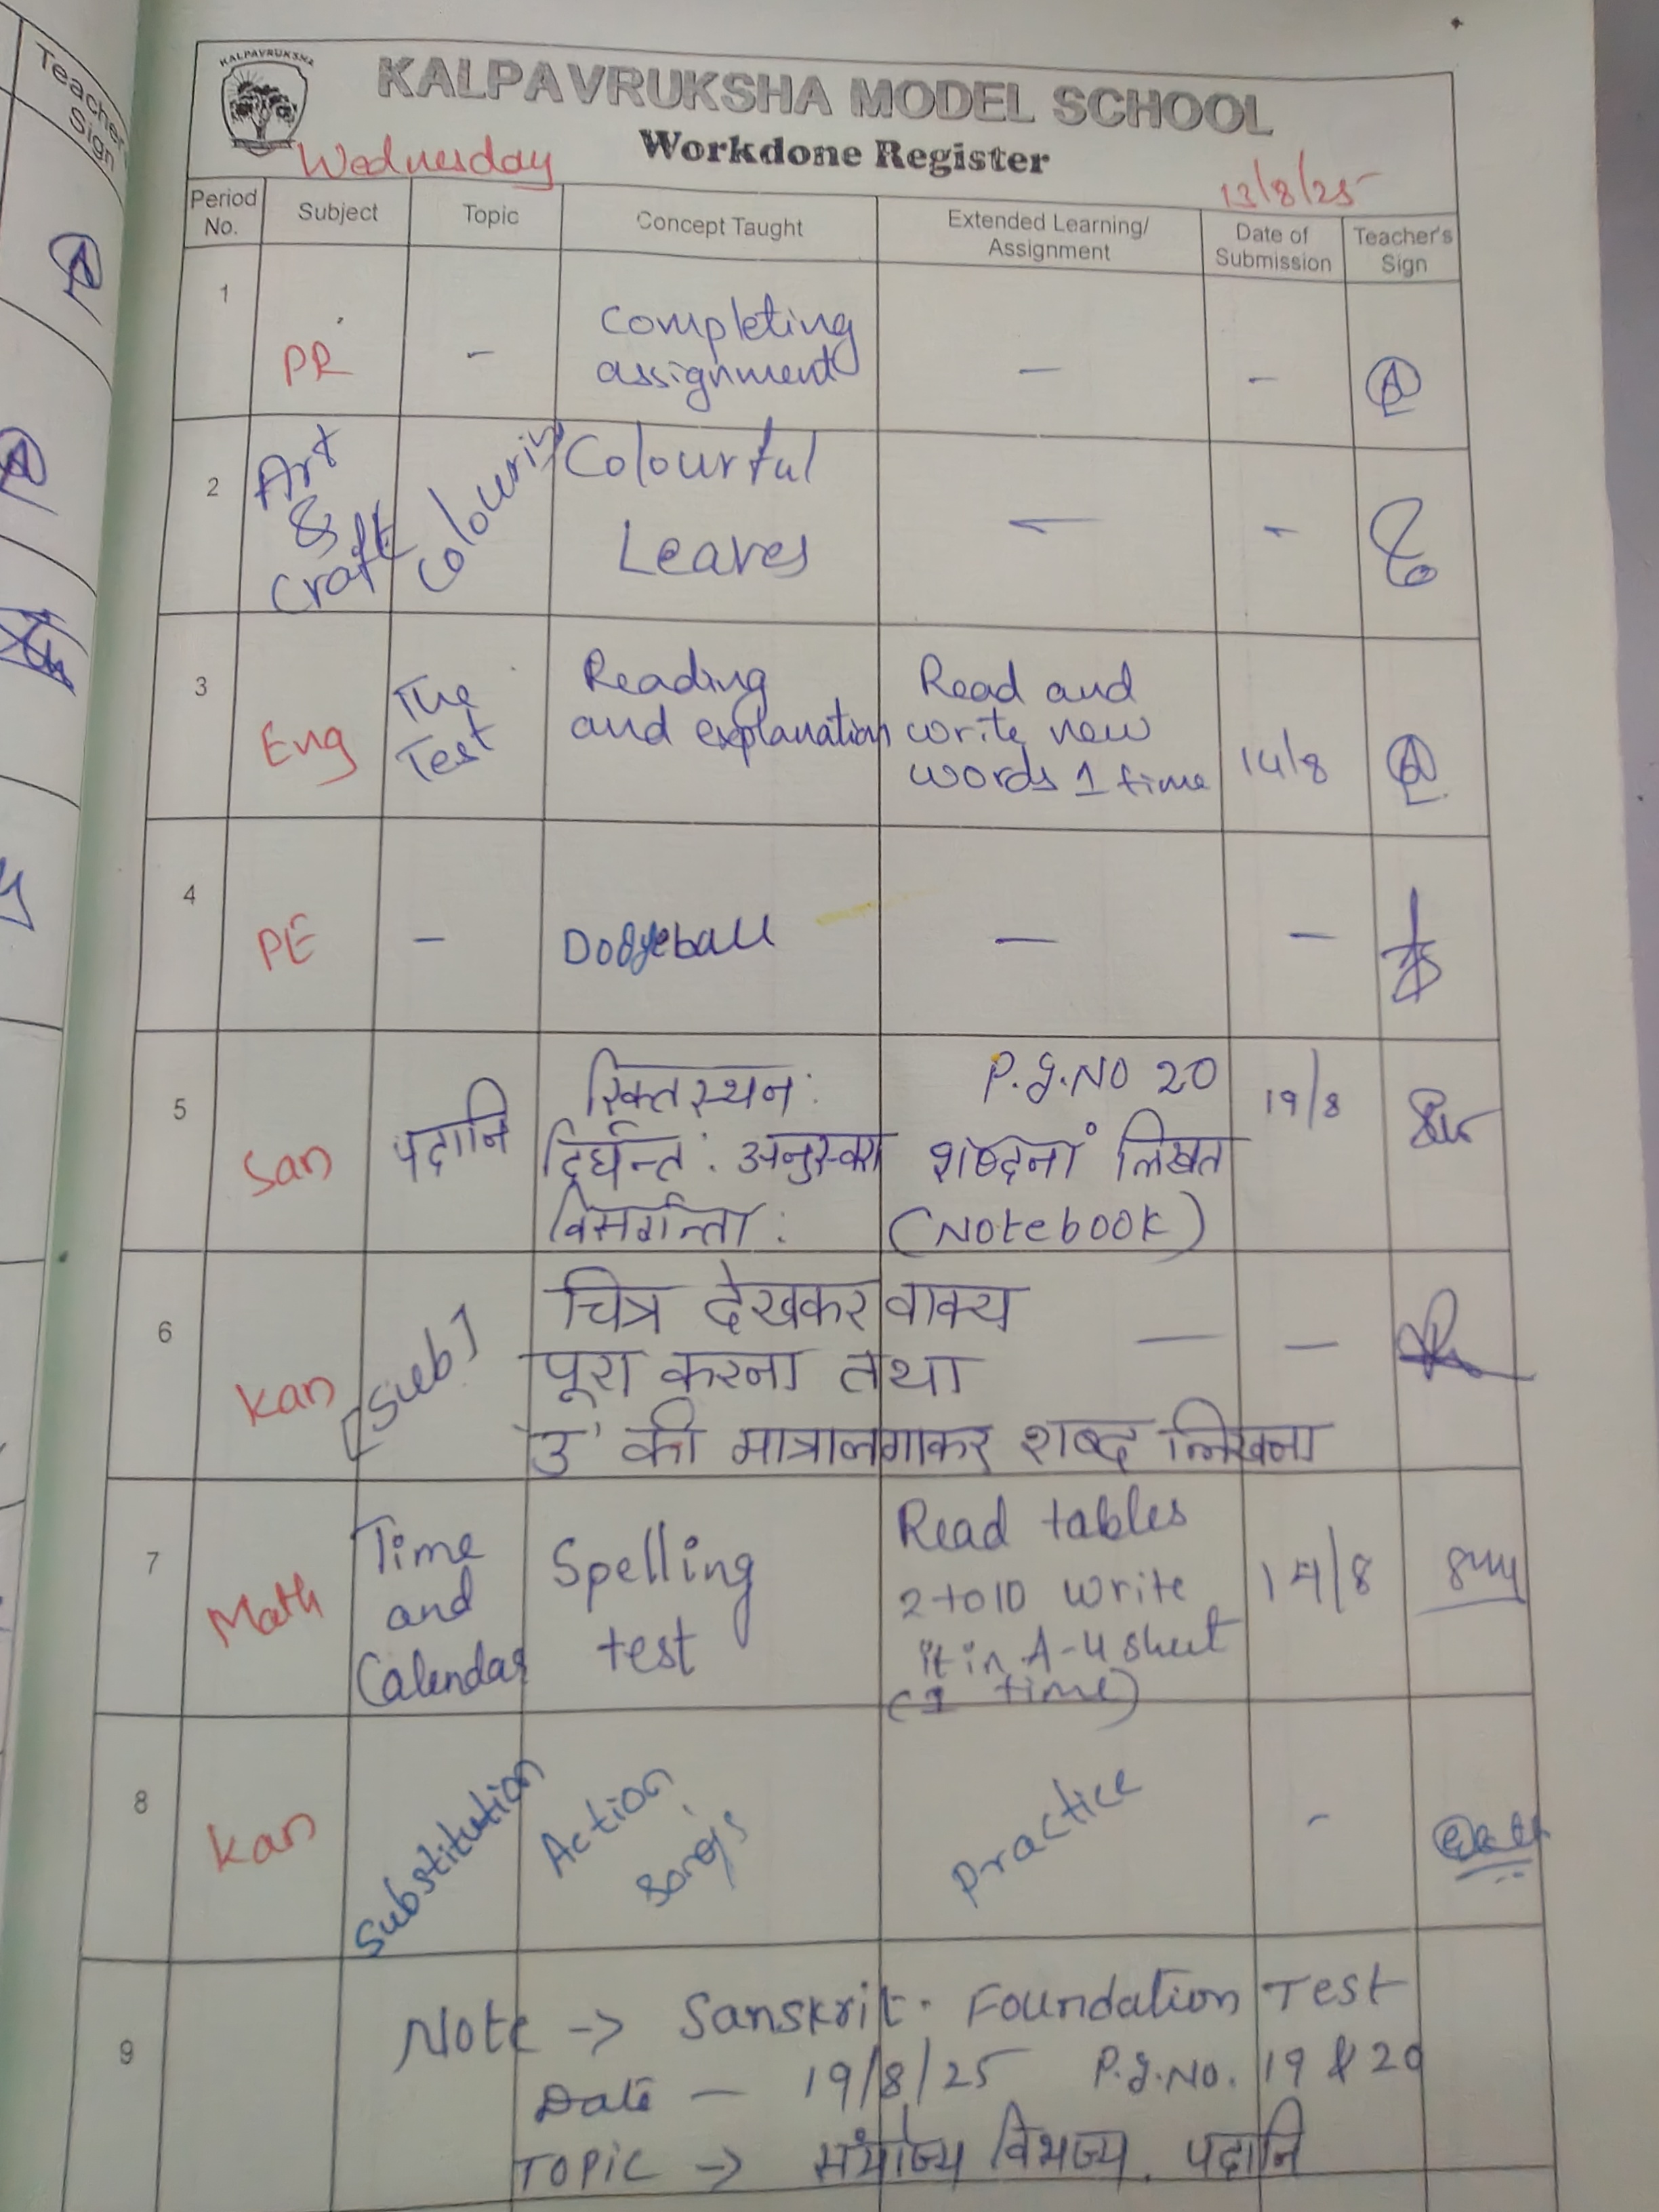 Teacher's
Sign
KALPAVRUKSHA
KALPAVRUKSHA MODEL SCHOOL
Workdone Register
Wednesday
13/8/25
Period No. Subject Topic Concept Taught Extended Learning/ Assignment Date of Submission Teacher's Sign
1 PR - Completing assignment - -
2 Art & Craft Colouring Colourful Leaves - -
3 Eng The Test Reading and explanation Read and write new words 1 time 14/8
4 PE - Dodgeball - -
5 San पदानि रिक्तस्थन: P.g.NO 20 19/8
दिर्घन्त: अनुस्वरा शब्दनां लिखत
विसर्गन्ता: (Notebook)
6 Kan [Sub] चित्र देखकर वाक्य - -
पूरा करना तथा
'उ' की मात्रा लगाकर शब्द लिखना
7 Math Time and Calendar Spelling test Read tables 2 to 10 write it in A-4 sheet (1 time) 14/8
8 Kan Substitution Action songs Practice -
9 Note -> Sanskrit. Foundation Test
Date - 19/8/25 P.g.NO. 19 & 20
TOPIC -> संयोज्य विभज्य. पदानि